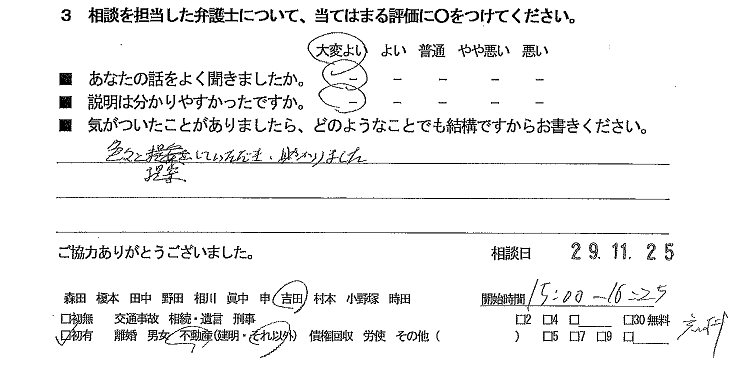 3 相談を担当した弁護士について、当てはまる評価に〇をつけてください。
大変よい よい 普通 やや悪い 悪い
■ あなたの話をよく聞きましたか。 － － － － －
■ 説明は分かりやすかったですか。 － － － － －
■ 気がついたことがありましたら、どのようなことでも結構ですからお書きください。
色々と提案をしていただき、助かりました
提案
ご協力ありがとうございました。 相談日 29.11.25
森田 榎本 田中 野田 相川 眞中 申 吉田 村本 小野塚 時田 開始時間 15:00-16:25
□初無 交通事故 相続・遺言 刑事 □2 □4 □ □30 無料
□初有 離婚 男女 不動産(建明・それ以外) 債権回収 労使 その他( ) □5 □7 □9 □